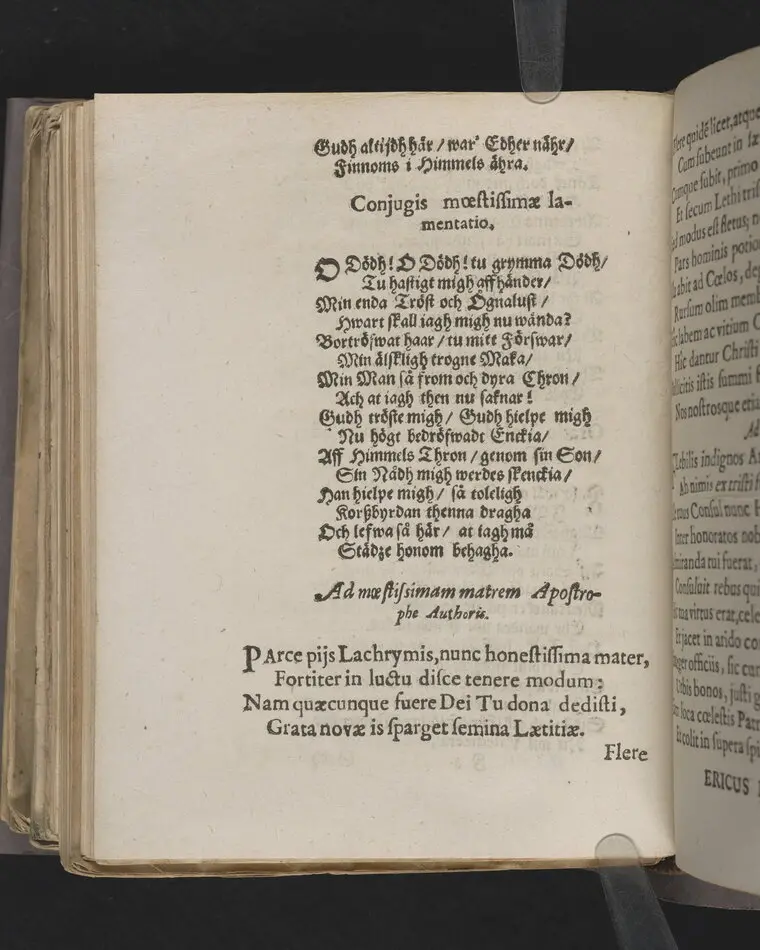 Gudh altijdh här / war' Edher nähr /
Finnoms i Himmels ähra.
Conjugis mœstissimæ la-
mentatio.
O Dödh! O Dödh! tu grymma Dödh /
Tu hastigt migh aff händer /
Min enda Tröst och Ögnalust /
Hwart skall iagh migh nu wända?
Bortröfwat haar / tu mitt Förswar /
Min älskligh trogne Maka /
Min Man så from och dyra Chron /
Ach at iagh then nu saknar!
Gudh tröste migh / Gudh hielpe migh
Nu högt bedröfwadt Enckia /
Aff Himmels Thron / genom sin Son /
Sin Nådh migh werdes skenckia /
Han hielpe migh / så toleligh
Korßbyrdan thenna dragha
Och lefwa så här / at iagh må
Städze honom behagha.
Ad mœstissimam matrem Apostro-
phe Authoris.
PArce pijs Lachrymis, nunc honestissima mater,
Fortiter in luctu disce tenere modum;
Nam quæcunque fuere Dei Tu dona dedisti,
Grata novæ is sparget semina Lætitiæ.
Flere
Flere quidẽ licet, atque
Cum subeunt in
subit, primo
Et secum Lethi
modus est fletus;
Pars hominis
abit ad Cœlos,
Rursum olim
labem ac vitium
Hic dantur Christi
istis summi
Nos nostrosque
Ad
indignos
Ah nimis ex tristi
Consul nunc
Inter honoratos
tui fuerat,
Consuluit rebus
virtus erat,
Et jacet in arido
officiis, sic
Urbis bonos, justi
loca cœlestis
Et colit in supera
ERICUS